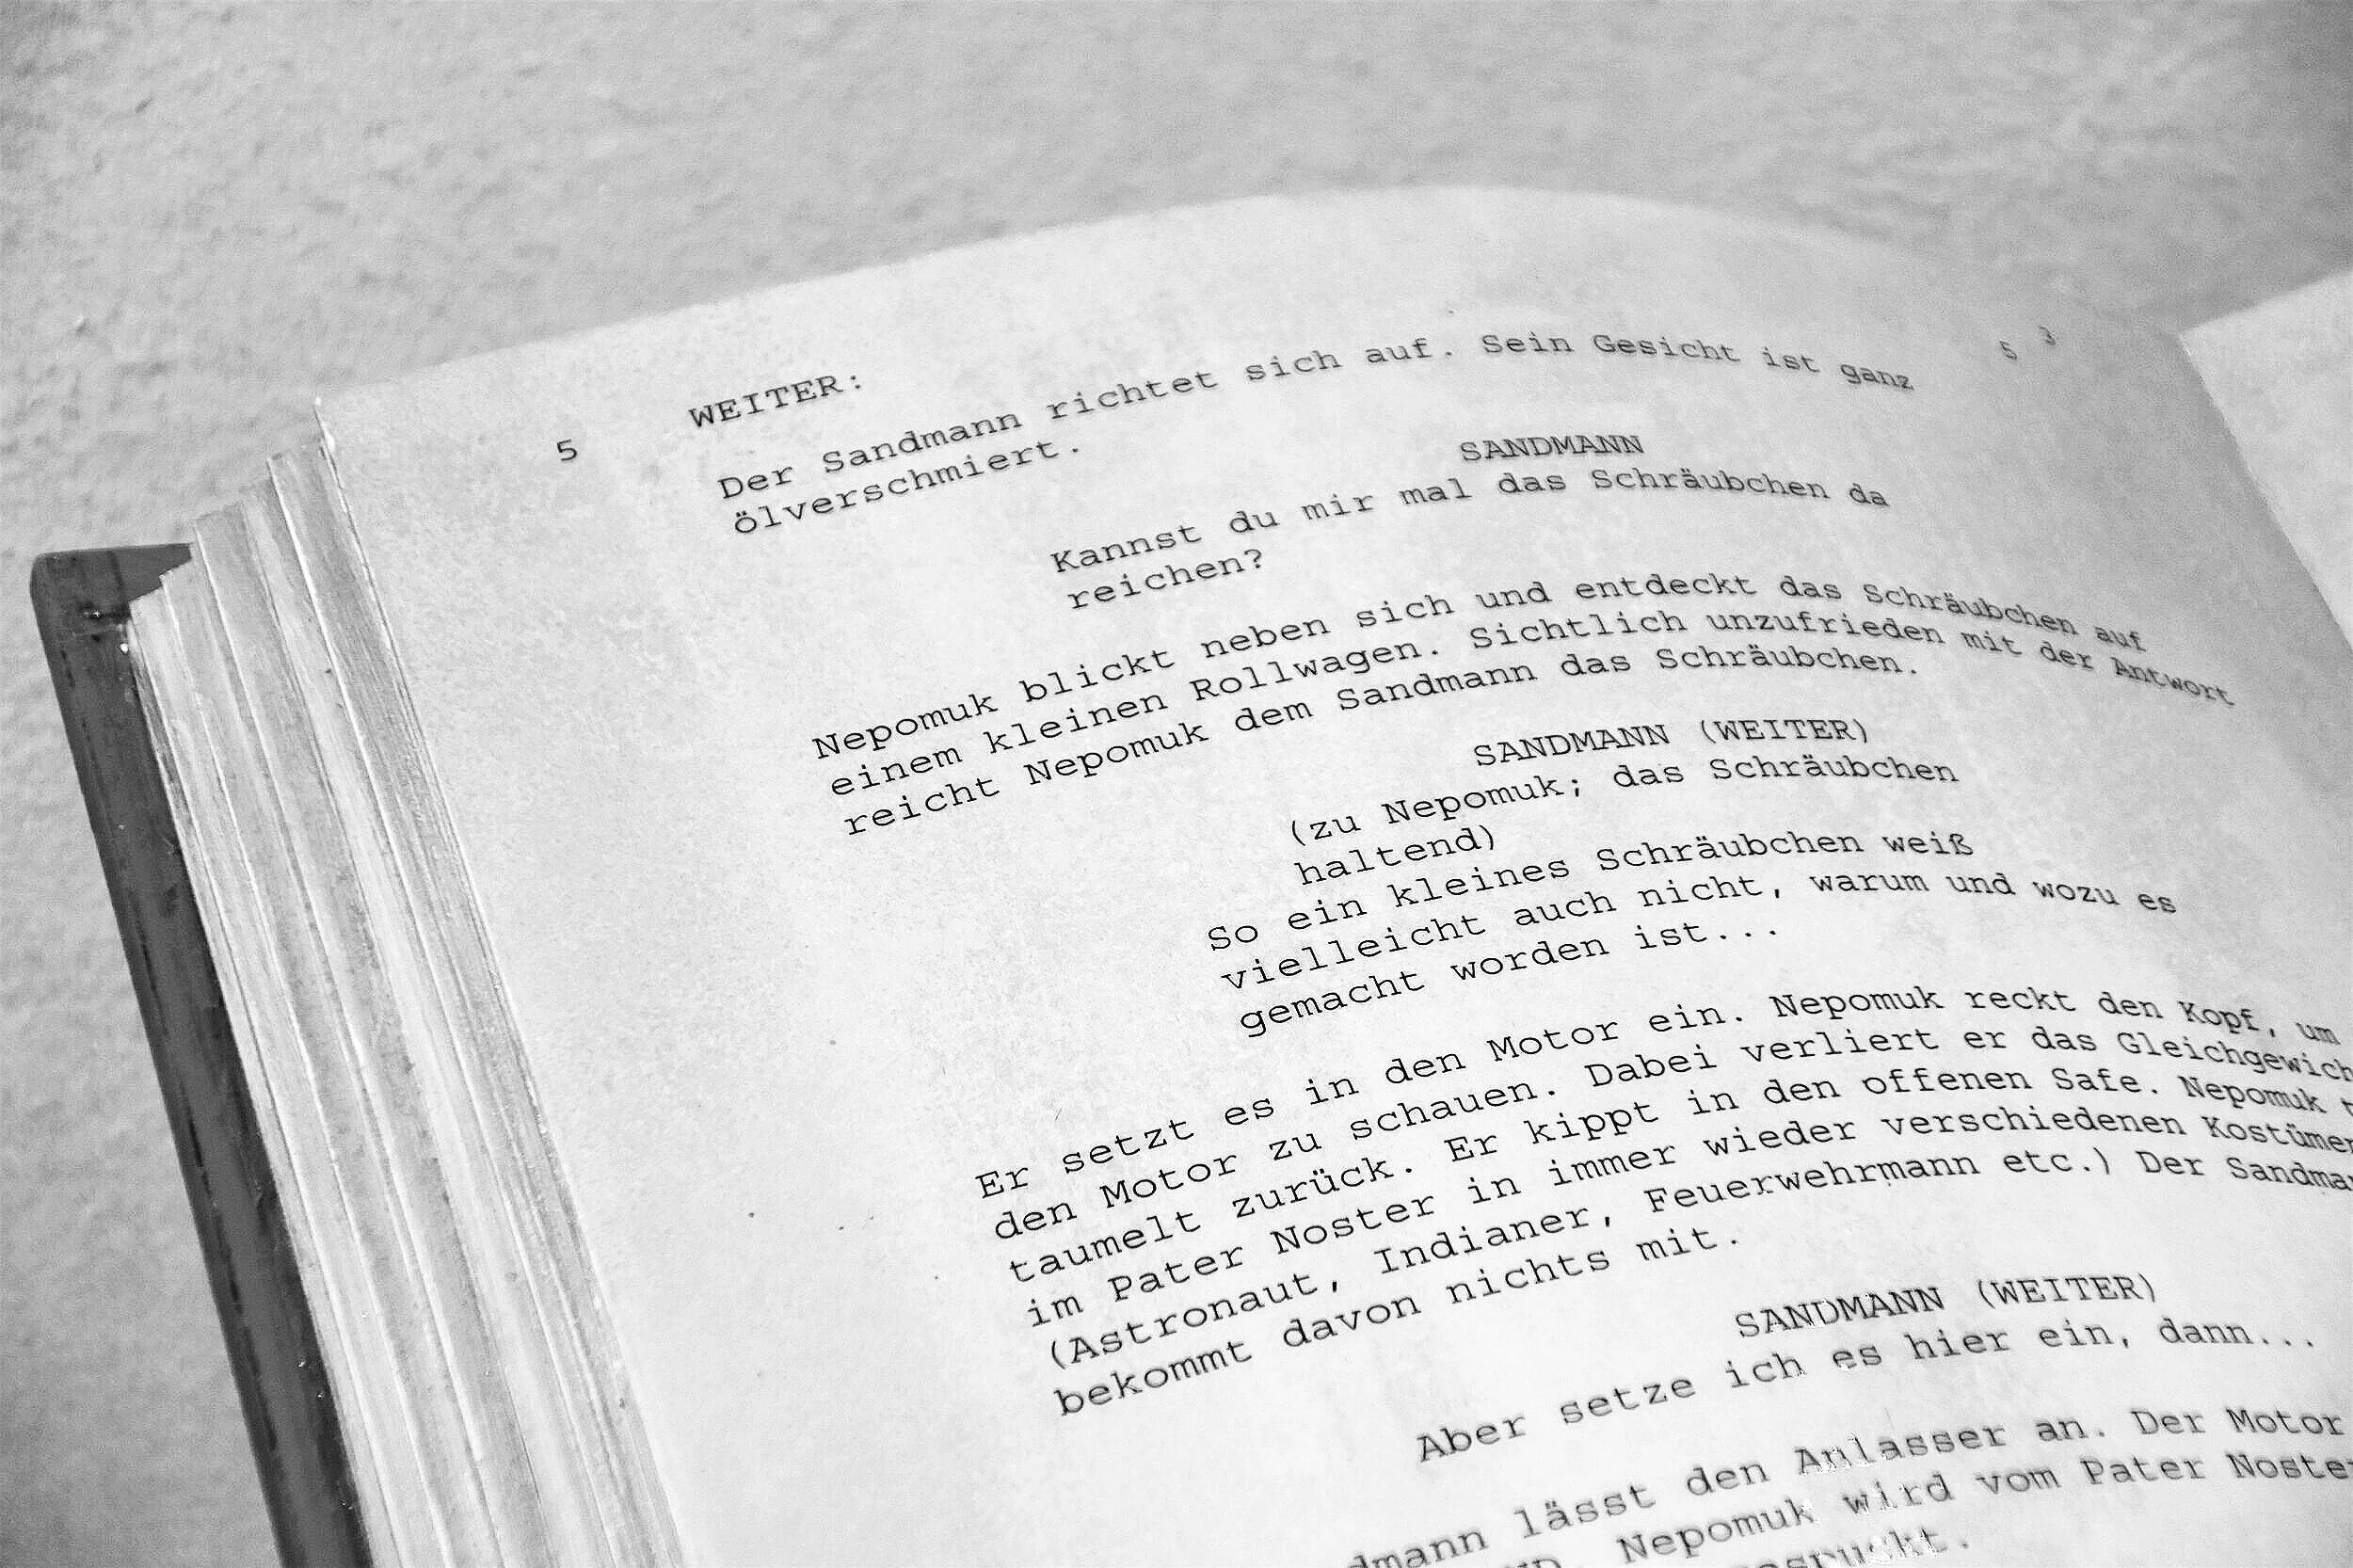 3
5 WEITER: 5
Der Sandmann richtet sich auf. Sein Gesicht ist ganz
ölverschmiert.
SANDMANN
Kannst du mir mal das Schräubchen da
reichen?
Nepomuk blickt neben sich und entdeckt das Schräubchen auf
einem kleinen Rollwagen. Sichtlich unzufrieden mit der Antwort
reicht Nepomuk dem Sandmann das Schräubchen.
SANDMANN (WEITER)
(zu Nepomuk; das Schräubchen
haltend)
So ein kleines Schräubchen weiß
vielleicht auch nicht, warum und wozu es
gemacht worden ist...
Er setzt es in den Motor ein. Nepomuk reckt den Kopf, um
den Motor zu schauen. Dabei verliert er das Gleichgewich
taumelt zurück. Er kippt in den offenen Safe. Nepomuk
im Pater Noster in immer wieder verschiedenen Kostümen
(Astronaut, Indianer, Feuerwehrmann etc.) Der Sandma
bekommt davon nichts mit.
SANDMANN (WEITER)
Aber setze ich es hier ein, dann...
dmann lässt den Anlasser an. Der Motor
Nepomuk wird vom Pater Noster